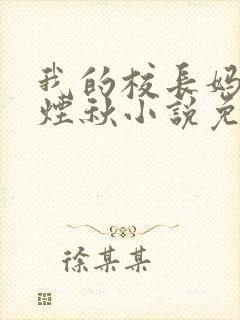 我的校長媽
煙秋小說免
徐某某